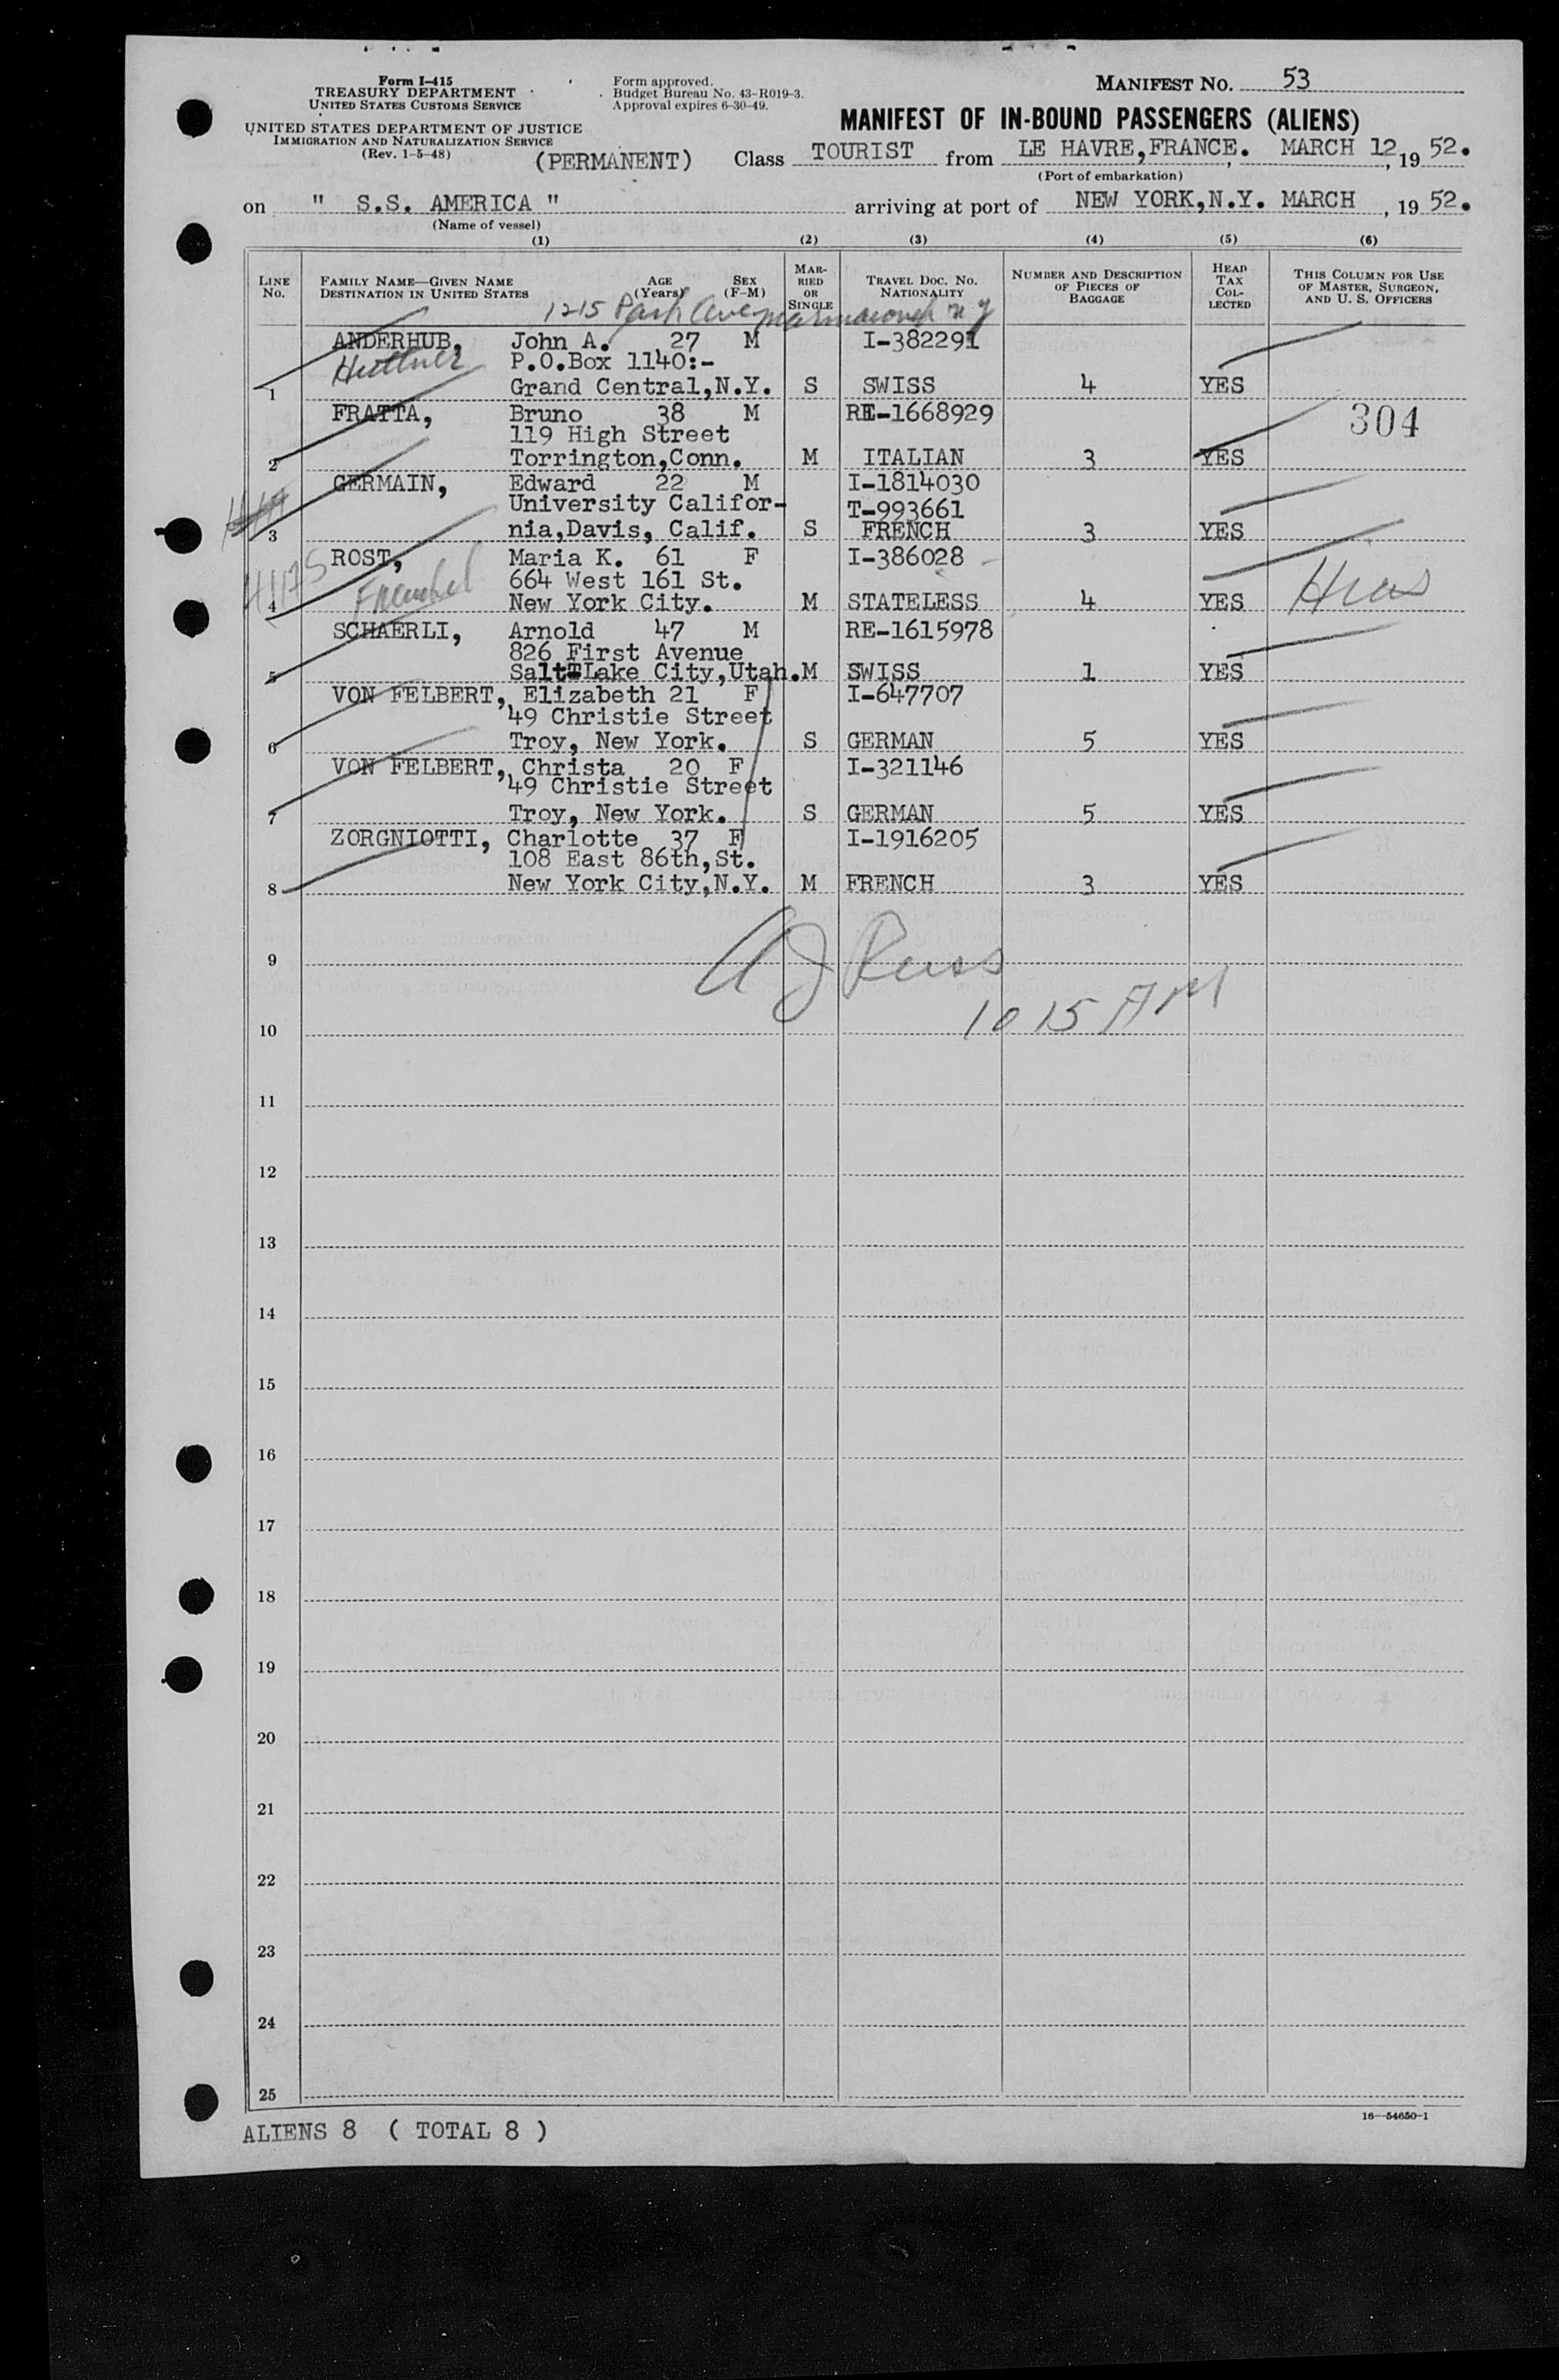 Form I-415
TREASURY DEPARTMENT
UNITED STATES CUSTOMS SERVICE
UNITED STATES DEPARTMENT OF JUSTICE
IMMIGRATION AND NATURALIZATION SERVICE
(Rev. 1-5-48)
Form approved.
Budget Bureau No. 43-R019-3.
Approval expires 6-30-49.
MANIFEST NO. 53
MANIFEST OF IN-BOUND PASSENGERS (ALIENS)
(PERMANENT) Class TOURIST from LE HAVRE,FRANCE. MARCH 12, 19 52.
(Port of embarkation)
on " S.S. AMERICA " arriving at port of NEW YORK,N.Y. MARCH , 19 52.
(Name of vessel)
(1) (2) (3) (4) (5) (6)
LINE No. FAMILY NAME—GIVEN NAME DESTINATION IN UNITED STATES AGE (Years) SEX (F-M) MARRIED OR SINGLE TRAVEL DOC. NO. NATIONALITY NUMBER AND DESCRIPTION OF PIECES OF BAGGAGE HEAD TAX COLLECTED THIS COLUMN FOR USE OF MASTER, SURGEON, AND U. S. OFFICERS
1215 Park Ave N Y
ANDERHUB, John A. 27 M I-382291
P.O.Box 1140:-
1 Grand Central,N.Y. S SWISS 4 YES
FRATTA, Bruno 38 M RE-1668929 304
119 High Street
2 Torrington,Conn. M ITALIAN 3 YES
GERMAIN, Edward 22 M I-1814030
University Califor- T-993661
3 nia,Davis, Calif. S FRENCH 3 YES
ROST, Maria K. 61 F I-386028
664 West 161 St.
4 New York City. M STATELESS 4 YES Hias
SCHAERLI, Arnold 47 M RE-1615978
826 First Avenue
5 Salt Lake City,Utah. M SWISS 1 YES
VON FELBERT, Elizabeth 21 F I-647707
49 Christie Street
6 Troy, New York. S GERMAN 5 YES
VON FELBERT, Christa 20 F I-321146
49 Christie Street
7 Troy, New York. S GERMAN 5 YES
ZORGNIOTTI, Charlotte 37 F I-1916205
108 East 86th,St.
8 New York City,N.Y. M FRENCH 3 YES
9
A J Russ
10 15 AM
10
11
12
13
14
15
16
17
18
19
20
21
22
23
24
25
16—54650-1
ALIENS 8 ( TOTAL 8 )